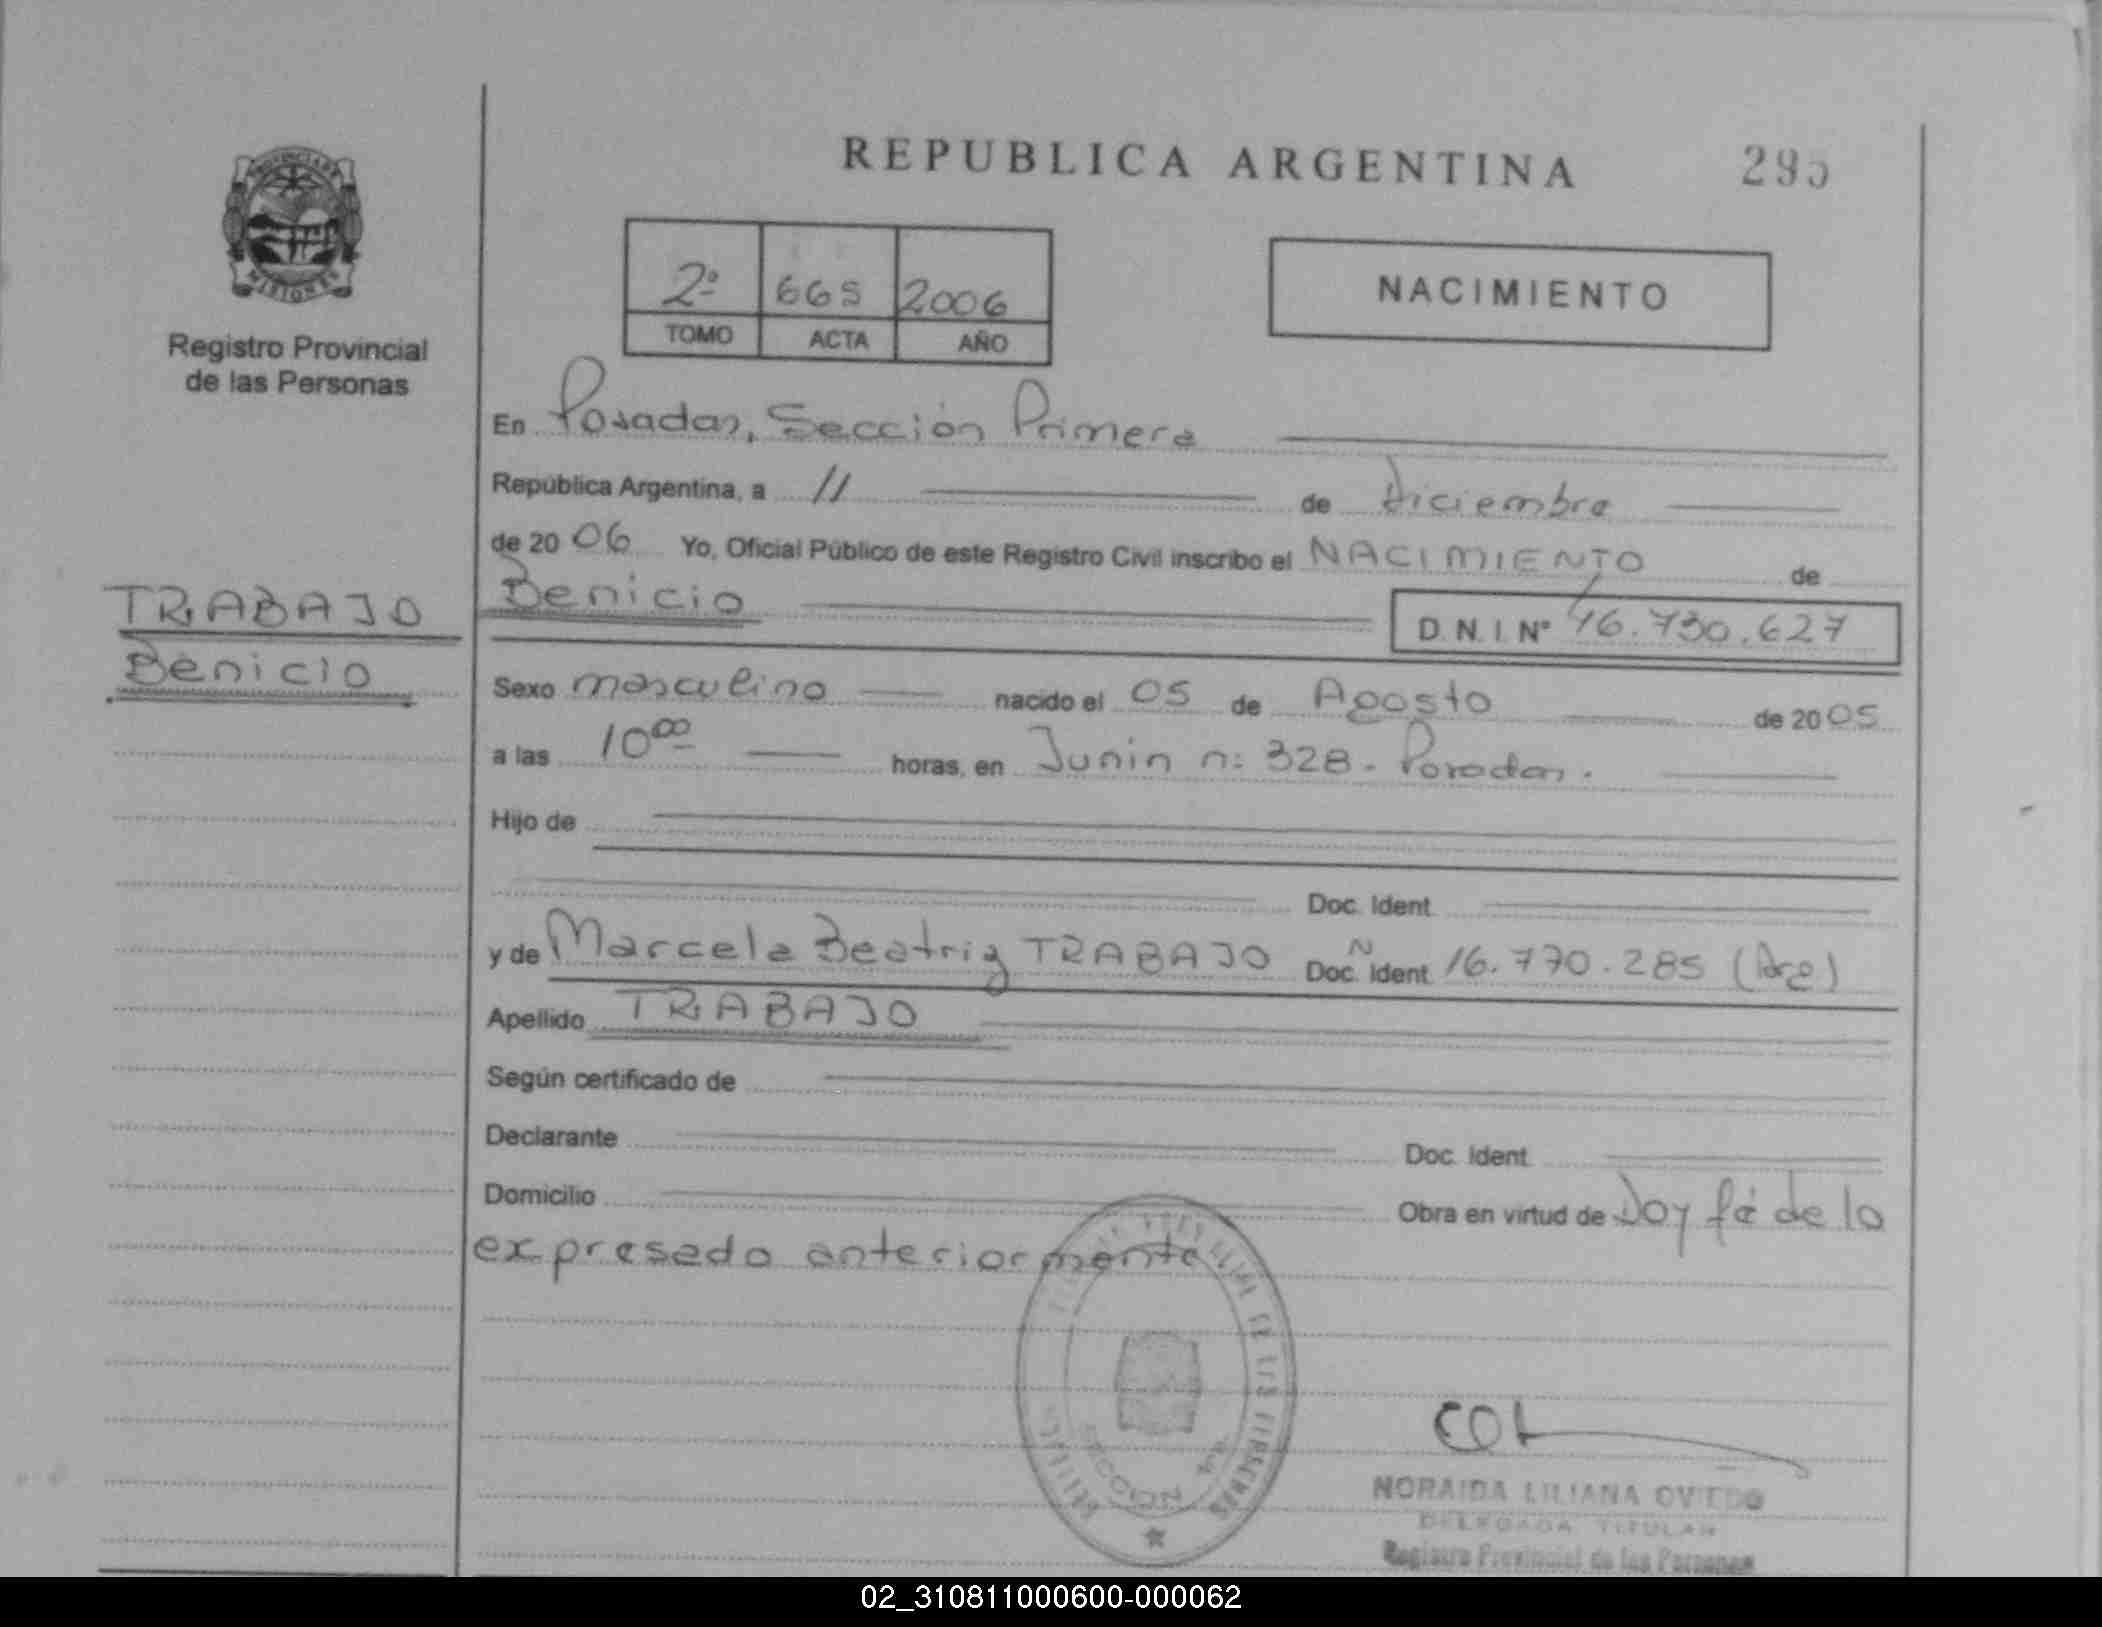 REPUBLICA ARGENTINA
295
PROVINCIA DE
MISIONES
Registro Provincial
de las Personas
2º 665 2006
TOMO ACTA AÑO
NACIMIENTO
En Posadas, Sección Primera
República Argentina, a 11 de Diciembre
de 2006 Yo, Oficial Público de este Registro Civil inscribo el NACIMIENTO de
Benicio
D.N.I. Nº 46.730.627
TRABAJO
Benicio
Sexo masculino nacido el 05 de Agosto de 2005
a las 10 00 horas, en Junin n: 328. Posadas.
Hijo de
Doc. Ident.
y de Marcela Beatriz TRABAJO Doc. Ident. N 16.770.285 (Arg)
Apellido TRABAJO
Según certificado de
Declarante Doc. Ident.
Domicilio Obra en virtud de Doy fé de lo
expresado anteriormente
SECCION 1ra
NORAIDA LILIANA OVIEDO
DELEGADA TITULAR
Registro Provincial de las Personas
02_310811000600-000062